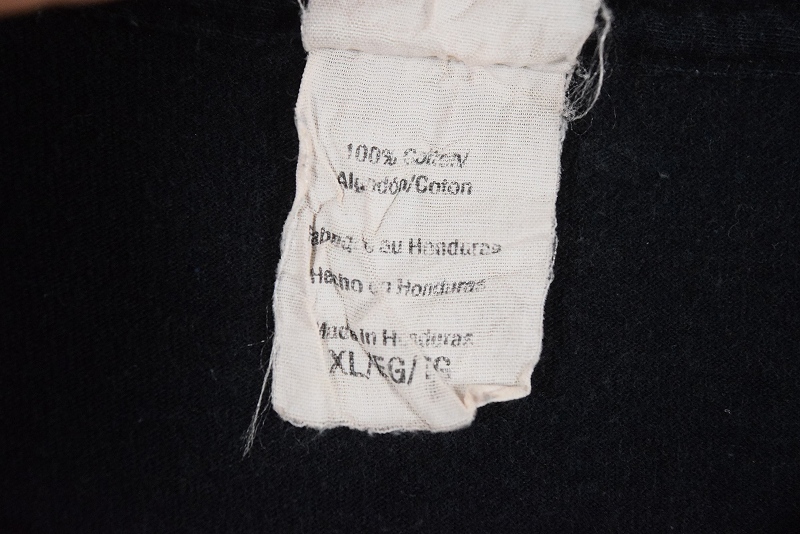 100% Cotton/
Algodón/Coton
Fabriqué au Honduras
Hecho en Honduras
Made in Honduras
XL/EG/TG